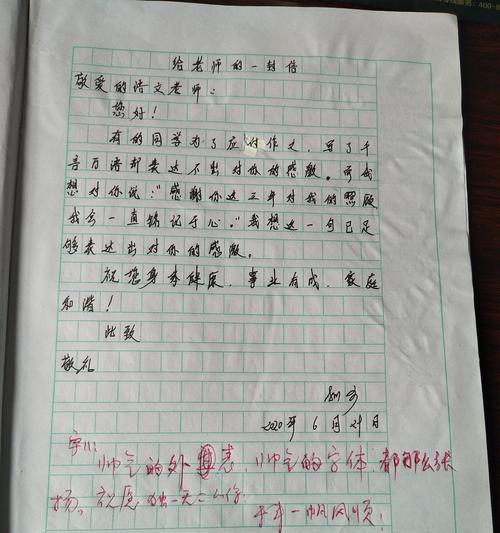 给老师的一封信
敬爱的语文老师：
您好！
有的同学为了应付作文，写了千
言万语却表达不出对你的感激。而我
想对你说："感谢你这三年对我的照顾
我会一直铭记于心。"我想这一句已足
够表达出对你的感激。
祝您身体健康，事业有成，家庭
和谐！
此致
敬礼
2020年6月29日
帅气的外表，帅气的字体，都那么张
扬。祝愿独一无二的你
千年一帆风顺！